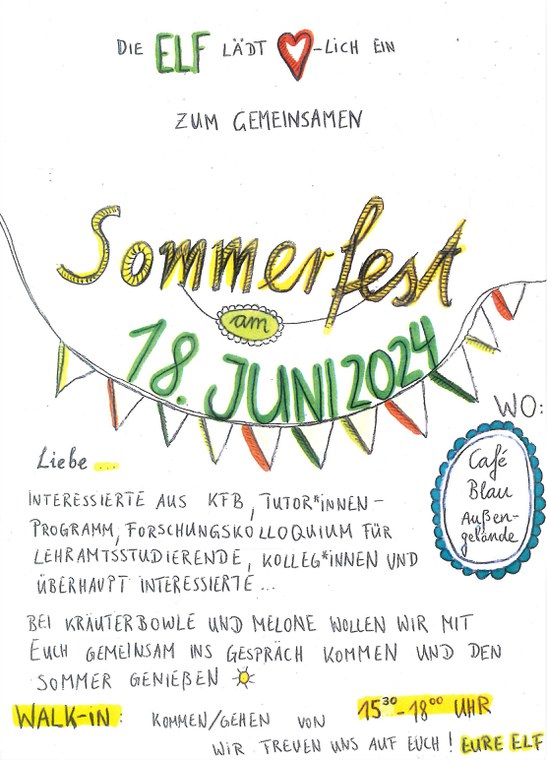 DIE ELF LÄDT ❤-LICH EIN
ZUM GEMEINSAMEN
Sommerfest
am
18. JUNI 2024
WO:
Café
Blau
Außen-
gelände
Liebe ...
INTERESSIERTE AUS KFB, TUTOR*INNEN-
PROGRAMM, FORSCHUNGSKOLLOQUIUM FÜR
LEHRAMTSSTUDIERENDE, KOLLEG*INNEN UND
ÜBERHAUPT INTERESSIERTE ...
BEI KRÄUTERBOWLE UND MELONE WOLLEN WIR MIT
EUCH GEMEINSAM INS GESPRÄCH KOMMEN UND DEN
SOMMER GENIEßEN
WALK-IN: KOMMEN/GEHEN VON 15³⁰-18⁰⁰ UHR
WIR FREUEN UNS AUF EUCH! EURE ELF